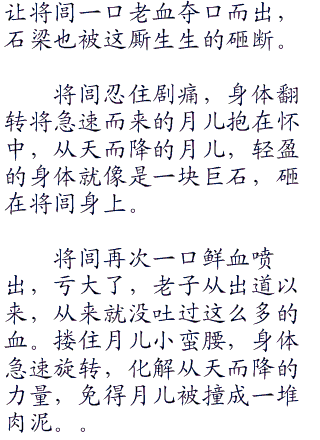 让将闾一口老血夺口而出，
石梁也被这厮生生的砸断。
将闾忍住剧痛，身体翻
转将急速而来的月儿抱在怀
中，从天而降的月儿，轻盈
的身体就像是一块巨石，砸
在将闾身上。
将闾再次一口鲜血喷
出，亏大了，老子从出道以
来，从来就没吐过这么多的
血。搂住月儿小蛮腰，身体
急速旋转，化解从天而降的
力量，免得月儿被撞成一堆
肉泥。。